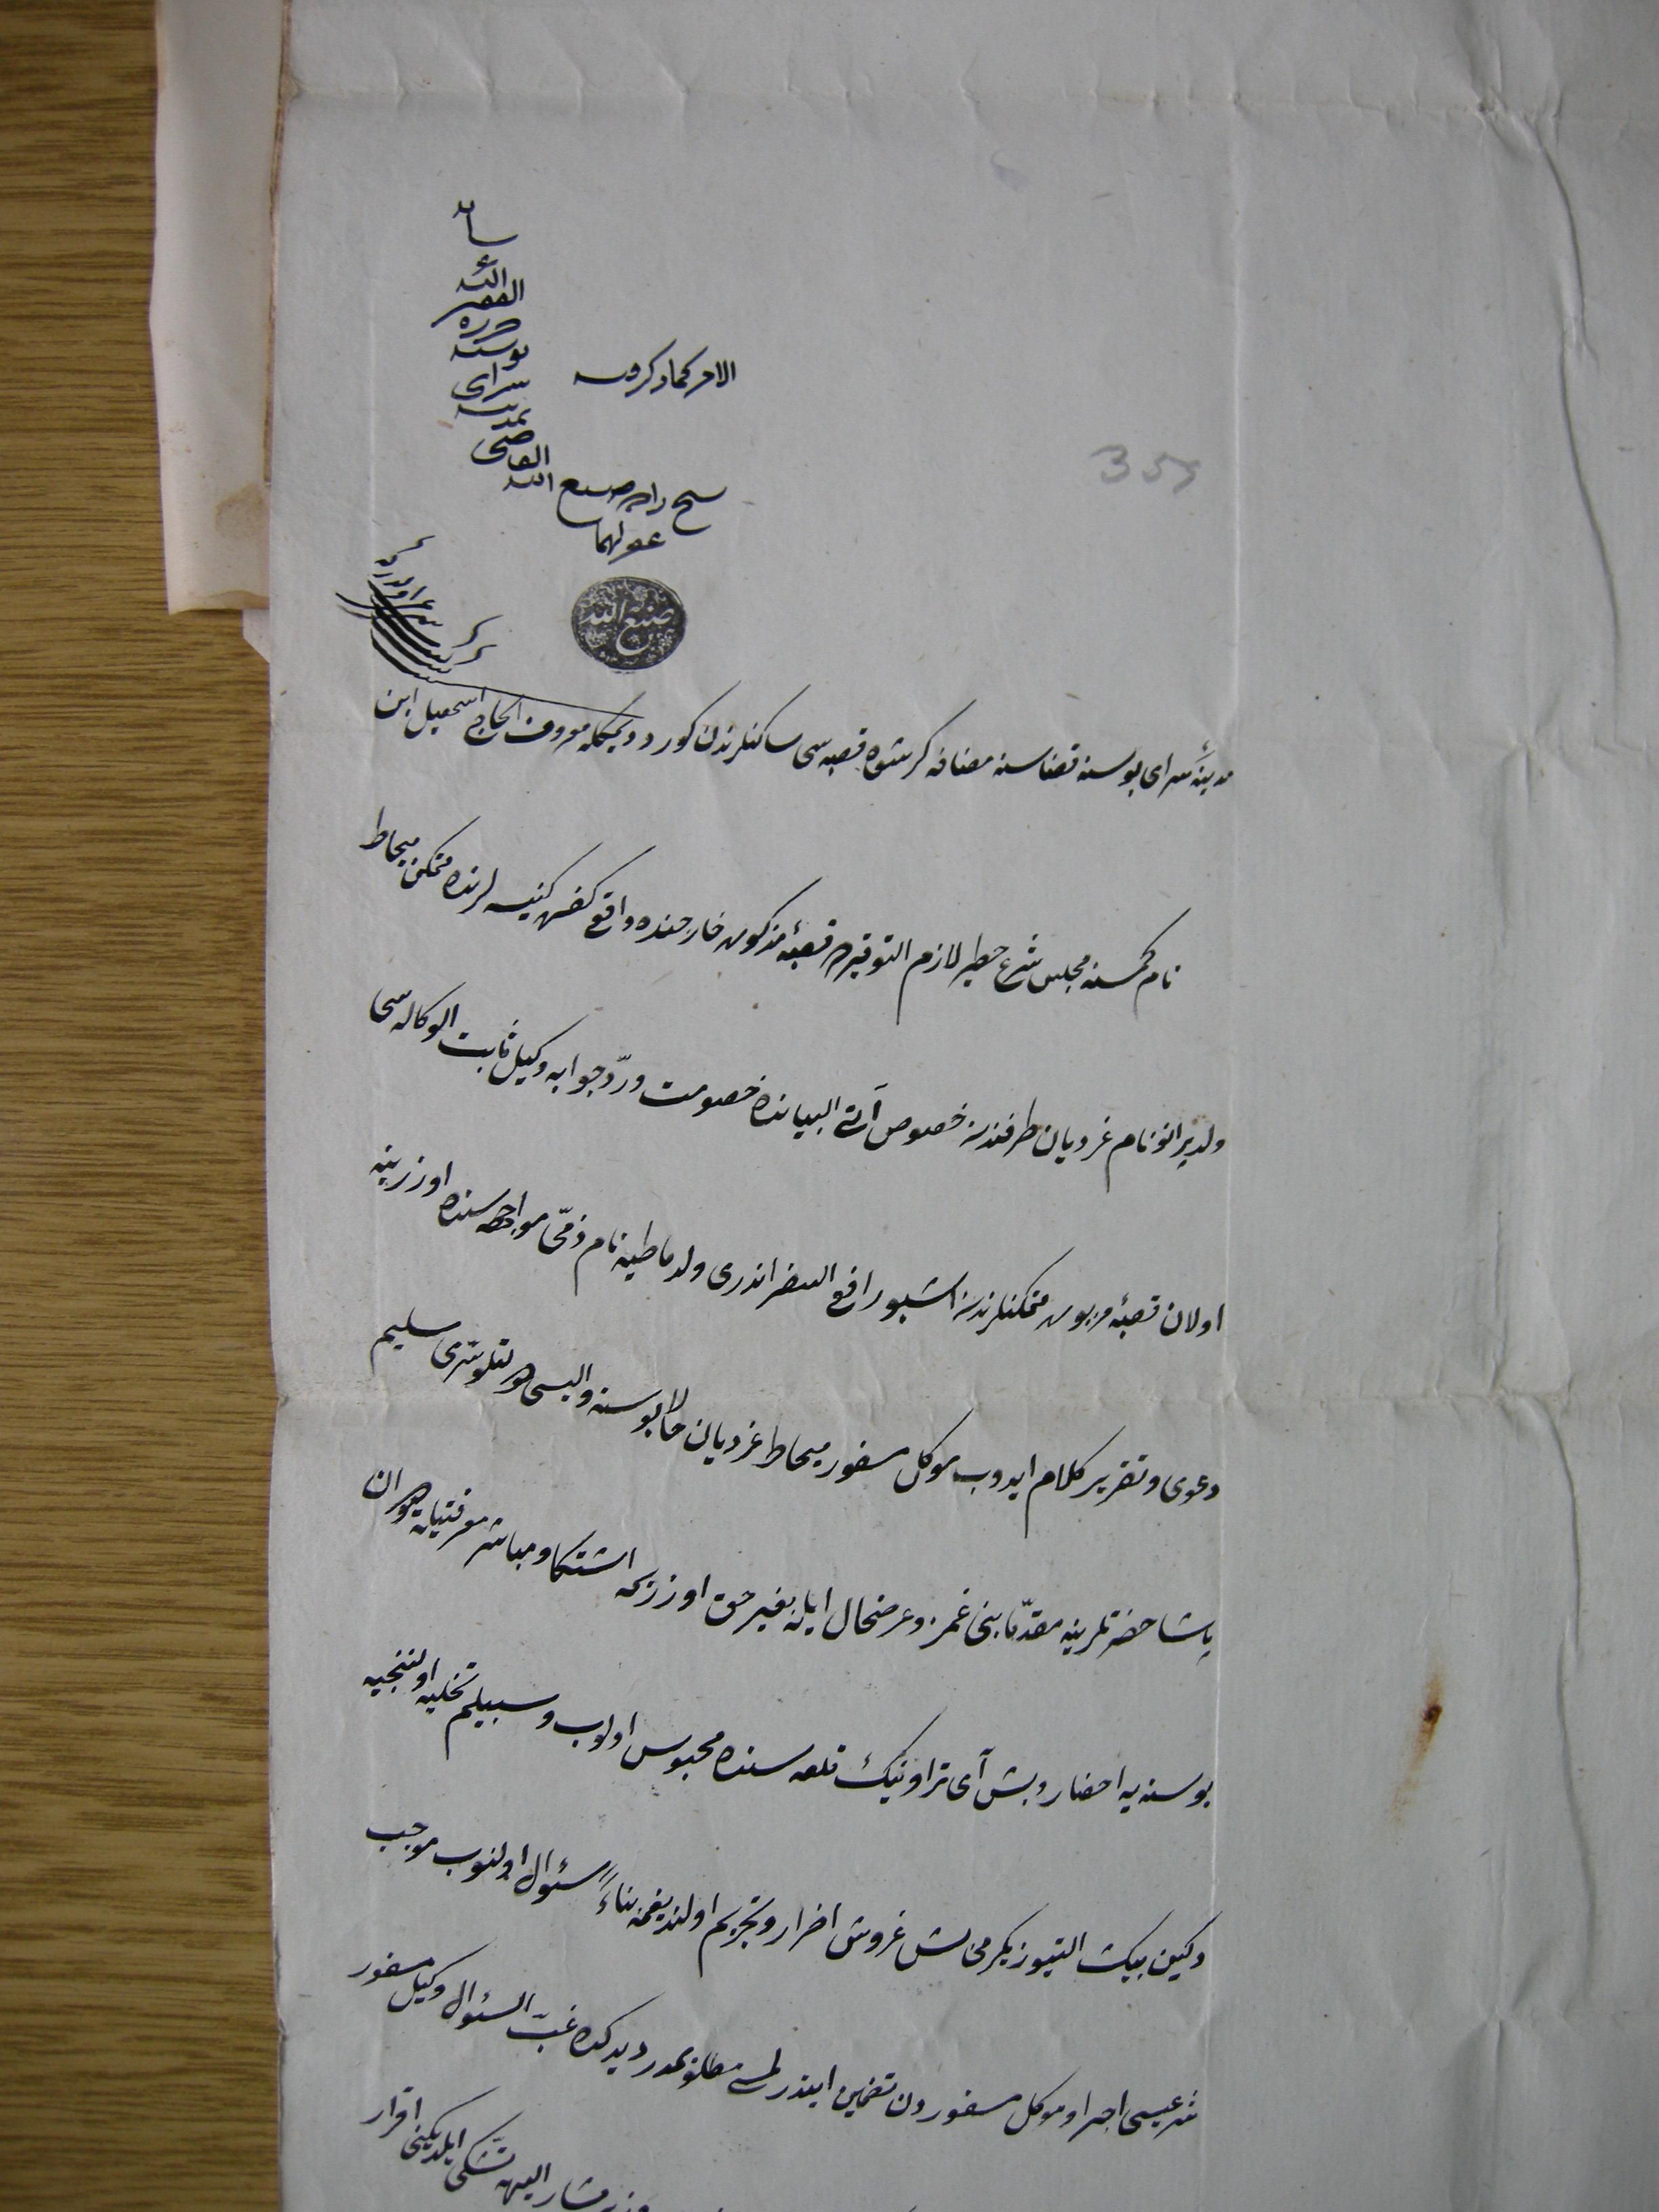 الامر كما ذكر فيه
شيخ زاده صنع الله
القاضى
بمدينه
سراى
بوسنه
حرره
الفقير
اليه
عفى لهما
355
صنع الله
مدينهٔ سراى بوسنه قضاسنه مضافه كرشوه قصبه سى ساكنلرندن كورد ديمكله معروف الحاج اسمعيل ابن
نام كمسنه مجلس شرع خطير لازم التوقيرده قصبهٔ مذكوره خارجنده واقع كفره كنيسه لرنده متمكن ميحاط
ولد پرانو نام غرديان طرفندن خصوص آتى البيانده خصومت ورد جوابه وكيل ثابت الوكاله سى
اولان قصبهٔ مزبوره متمكنلرندن اشبو رافع السفر اندرى ولد ماطيه نام ذمى مواجهه سنده اوزرينه
دعوى وتقرير كلام ايدوب موكل مسفور ميحاط غرديان حالا بوسنه واليسى دولتلو سرى سليم
پاشا حضرتلرينه مقدما بنى غمز وعرضحال ايله بغير حق اوزريمه اشتكا ومباشر معرفتيله ديوان
بوسنه يه احضار وبش آى تراونيك قلعه سنده محبوس اولوب وسبيلم تخليه اولنجيه
دكين بيك التيوز يكرمى بش غروش اضرار وتجريم اولنديغمه بناءً سئوال اولنوب موجب
شرعيسى اجرا وموكل مسفوردن تضمين ايتدرلمسى مطلوبمدر ديدكده غب السئوال وكيل مسفور
وزير مشار اليهه تشكى ايلديكنى اقرار